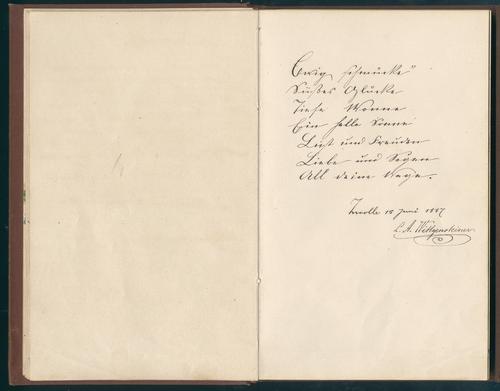 Ewig schmücke
Süßes Glücke
Tiefe Wonne
Ein helle Sonne
Lust und Freuden
Liebe und Segen
All deine Wege.
Zwolle 18 Juni 1887
L. A. Wittgensteiner